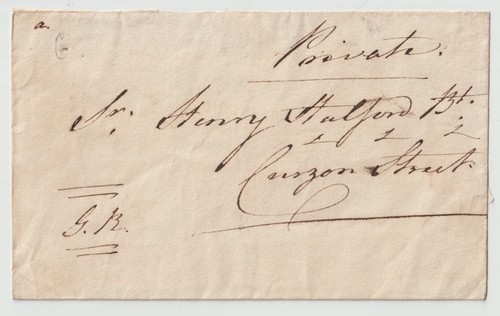 a.
G
Private.
Sr. Henry Halford Bt.
Curzon Street.
G. R.